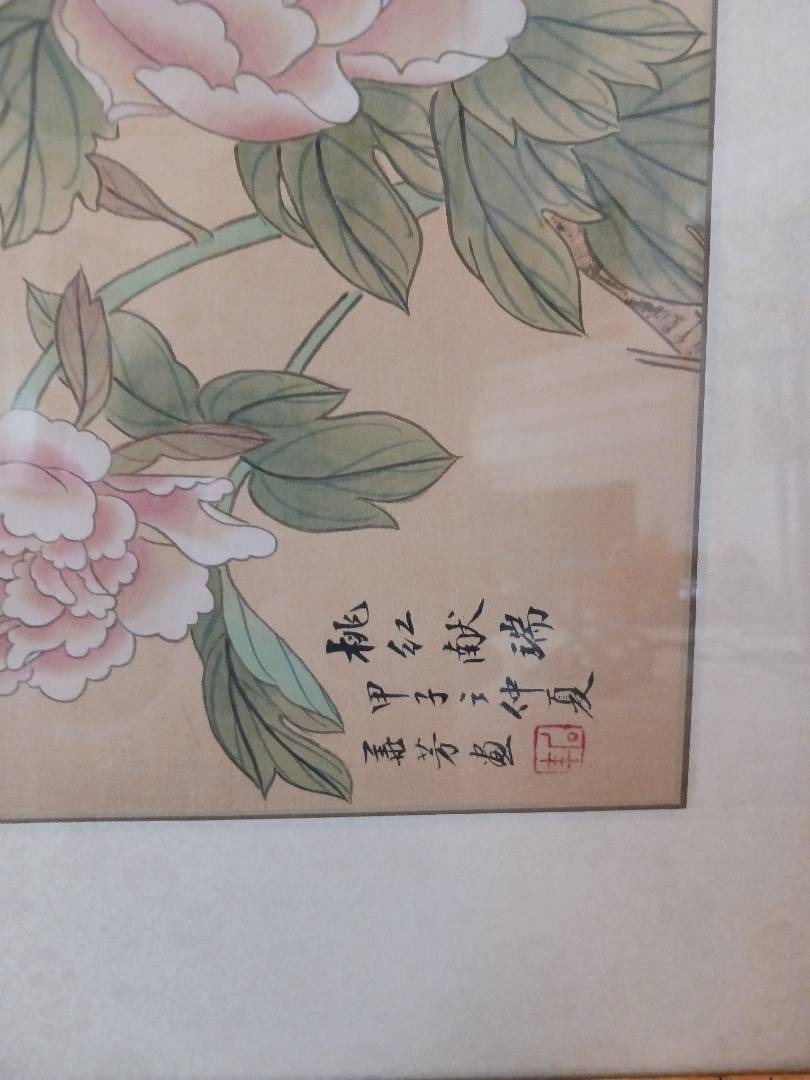 桃红献瑞
甲子之仲夏
芳画